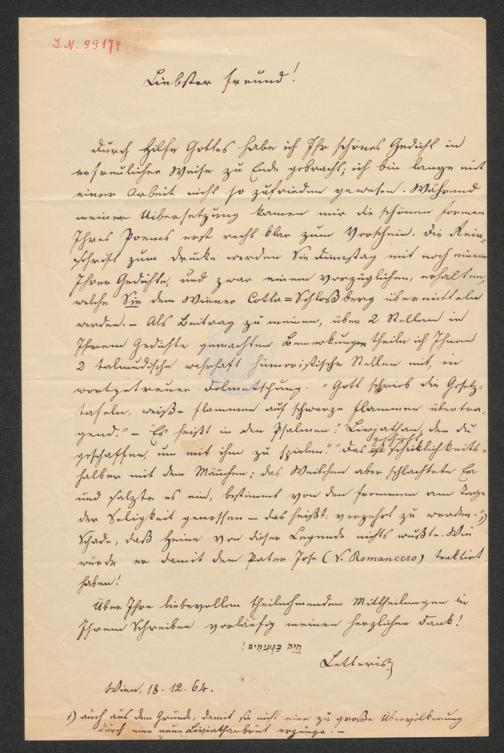 I.N. 99174
Liebster Freund!
Durch Hilfe Gottes habe ich Ihr schönes Gedicht in
erfreulicher Weise zu Ende gebracht; ich bin lange mit
einer Arbeit nicht so zufrieden gewesen. Während
meiner Uibersetzung kamen mir die schönen Formen
Ihres Poems erst recht klar zum Vorschein. Die Rein-
schrift zum Drucke werden Sie Dienstag mit noch einem
Ihrer Gedichte, und zwar einem vorzüglichen, erhalten,
welche Sie dem Wiener Cotta=Schloßberg übermitteln
werden. – Als Beitrag zu meinen, über 2 Stellen in
Ihrem Gedichte gemachten Bemerkungen theile ich Ihnen
2 talmudische wahrhaft humoristische Stellen mit, in
wortgetreuer Dolmetschung. "Gott schrieb die Gesetz-
tafeln, weiße Flammen auf schwarze Flammen übertra-
gend." – "Es heißt in den Psalmen: "Liwjathan, den du
geschaffen, um mit ihm zu spielen." Das geschieht schicklichkeits-
halber mit dem Männchen; das Weibchen aber schlachtete Er
und salzte es ein, bestimmt von den Frommen am Tage
der Seligkeit genossen – das heißt: verzehrt zu werden. 1)
Schade, daß Heine von dieser Legende nichts wußte. Wie
würde er damit den Pater Jose (V. Romancero) traktirt
haben!
Über Ihre liebevollen theilnehmenden Mittheilungen in
Ihrem Schreiben vorläufig meinen herzlichen Dank!
חיה בנעימים!
Letteris
Wien, 18.12.64.
1) auch aus dem Grunde, damit sie nicht eine zu große Übervölkerung
durch eine neue Liwiathanbrut erzeuge. –